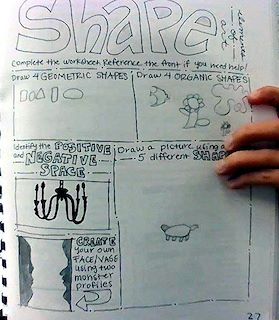 Shape
elements
of
art
Complete the worksheet. Reference the front if you need help!
Draw 4 GEOMETRIC SHAPES
Draw 4 ORGANIC SHAPES
Identify the POSITIVE
and NEGATIVE
SPACE
Draw a picture using a
5 different
CREATE
your own
FACE/VASE
using two
monster
profiles
27